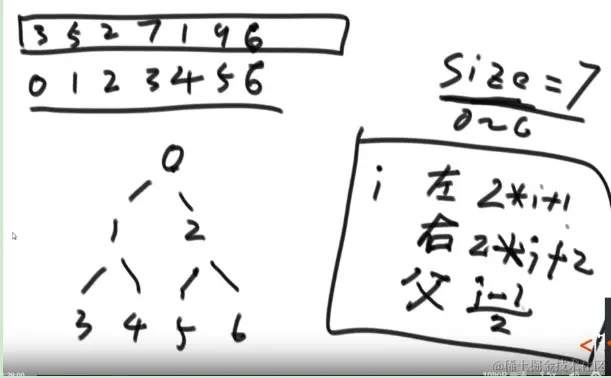 3 5 2 7 1 9 6
0 1 2 3 4 5 6
size=7
0~6
0
1 2
3 4 5 6
i 左 2*i+1
右 2*i+2
父 i-1
2
@稀土掘金技术社区